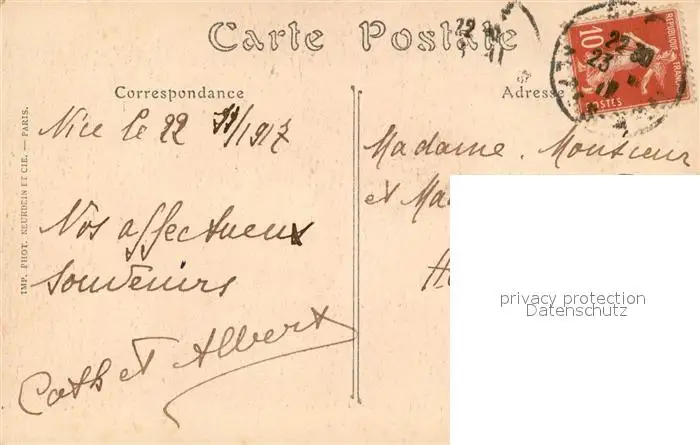 Carte Postale
Correspondance
Adresse
Nice le 22 /1917
Nos affectueux
souvenirs
Cath et Albert
Madame. Monsieur
et
IMP. PHOT. NEURDEIN ET CIE. — PARIS.
REPUBLIQUE FRANC
10
POSTES
22 30
23
privacy protection
Datenschutz